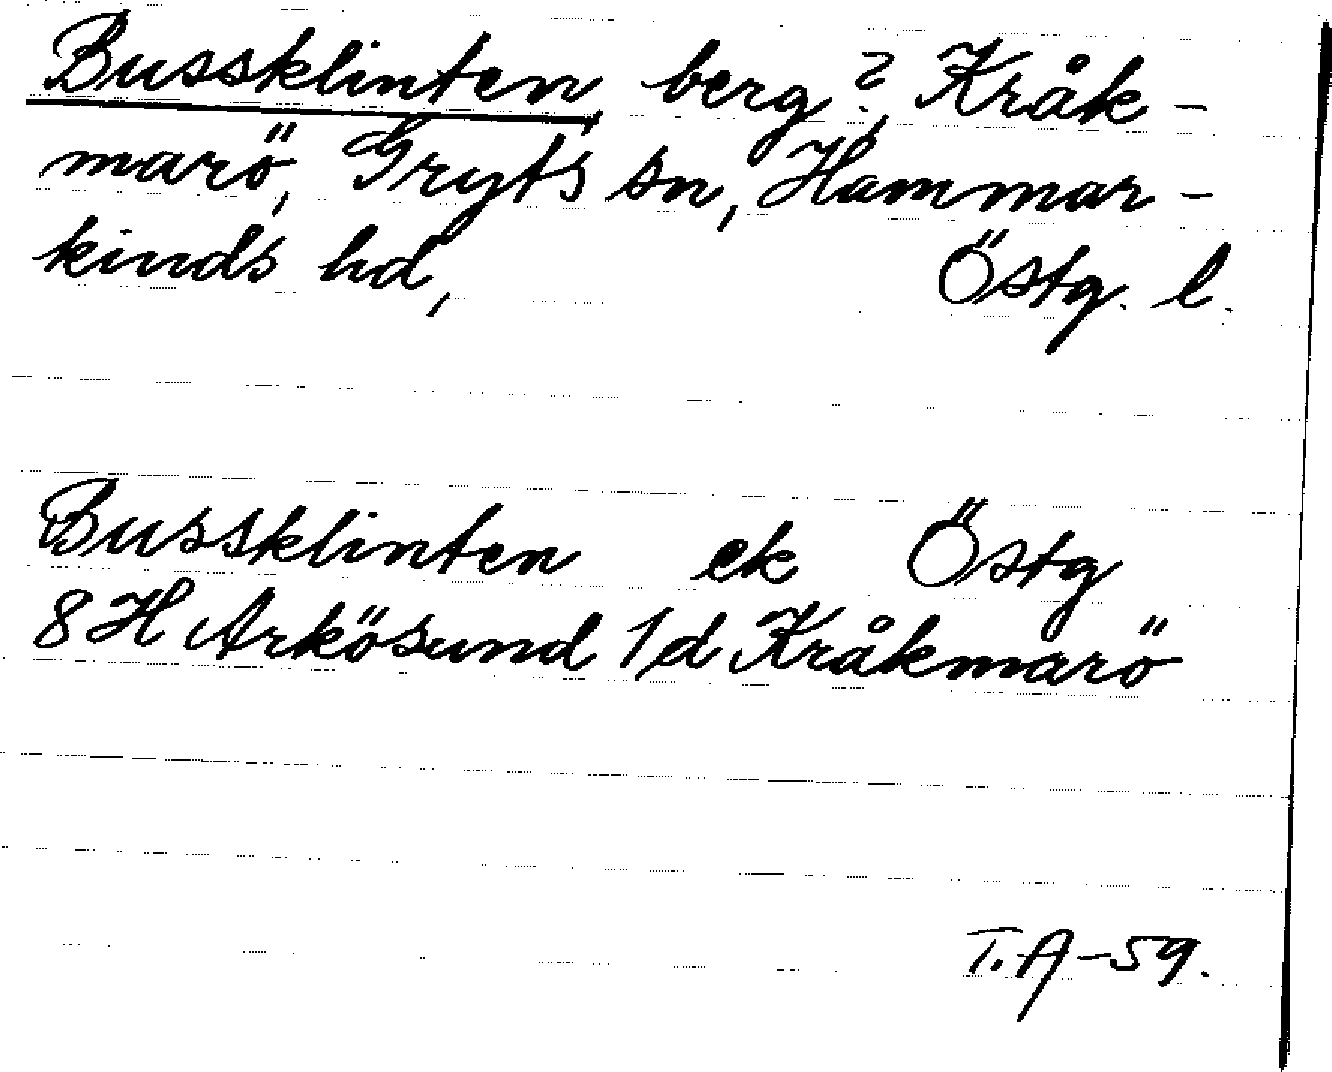 Bussklinten, berg?, Kråk-
marö, Gryts sn, Hammar-
kinds hd, Östg. l.
Bussklinten ek Östg
8H Arkösund 1/d Kråkmarö
T.A-59.